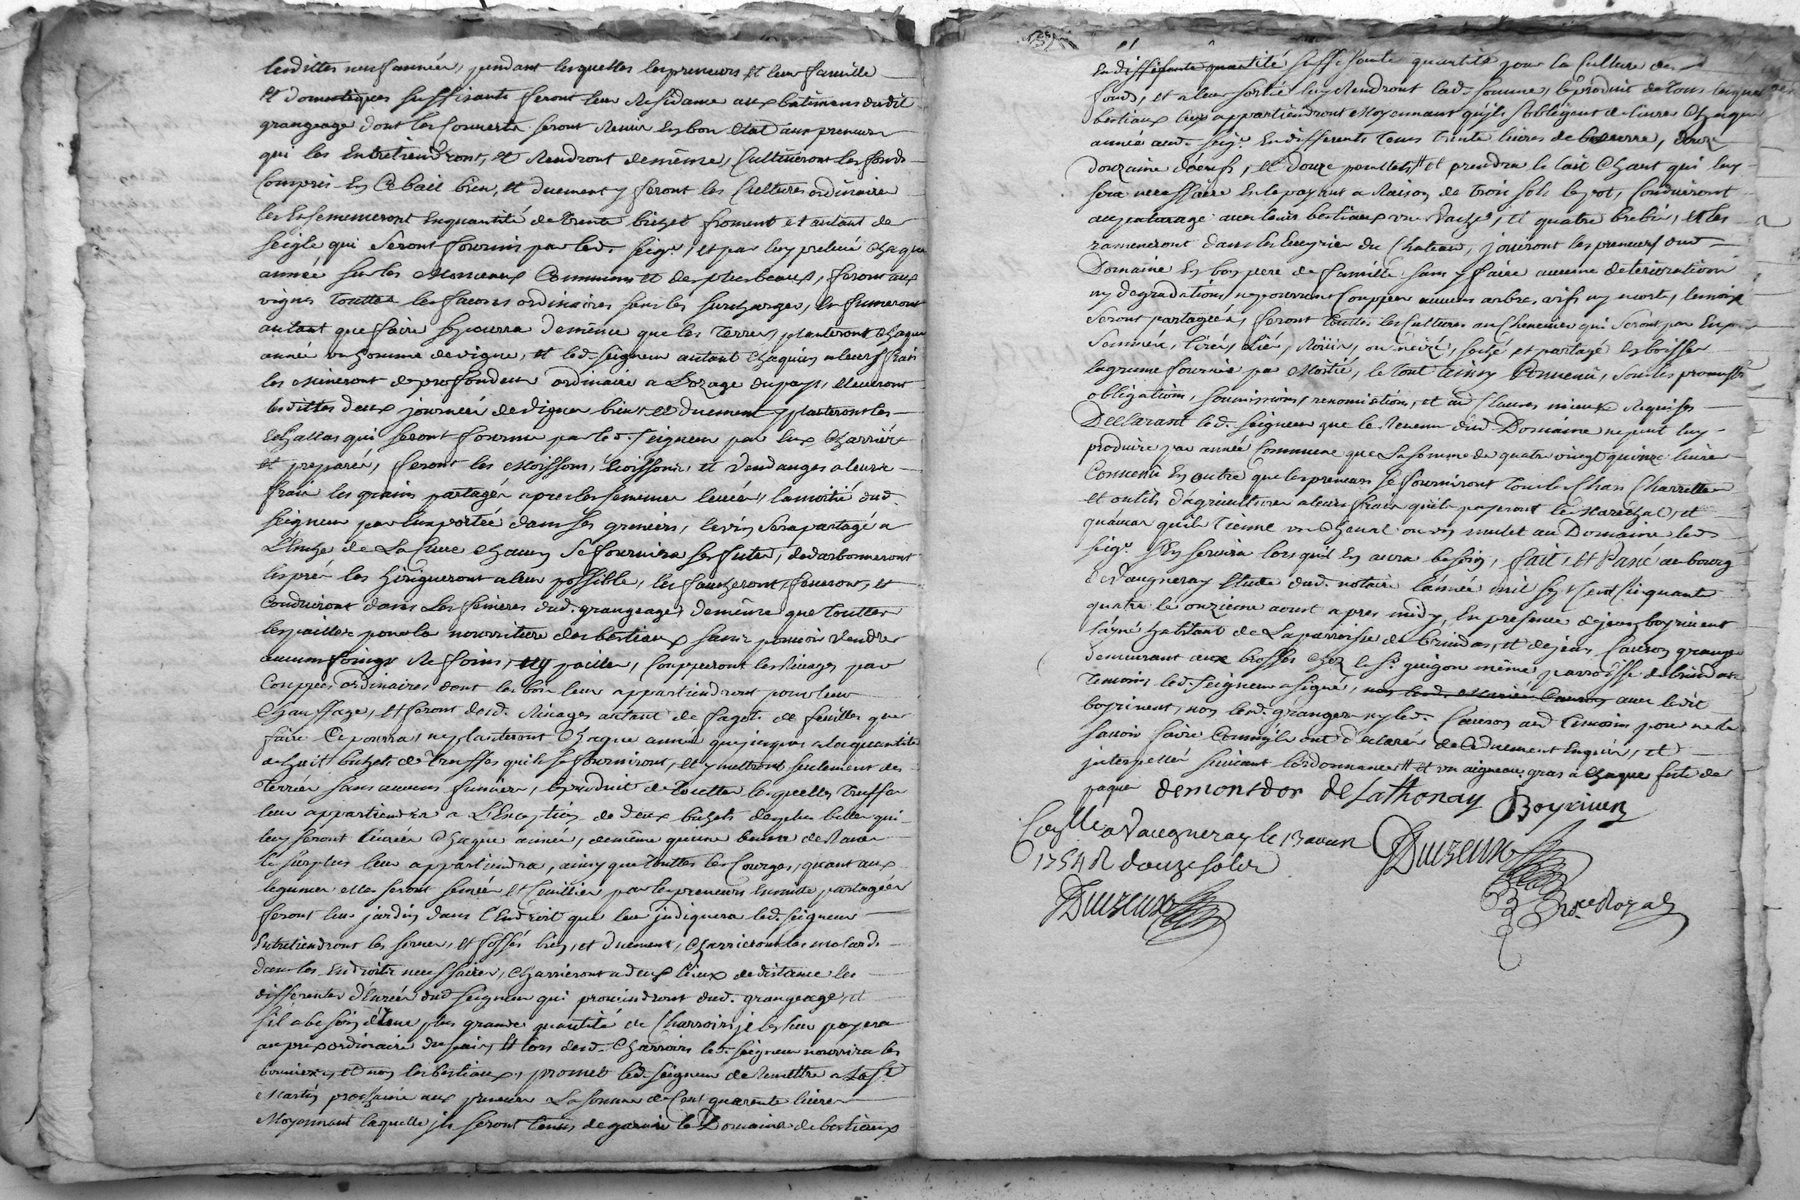 lesdittes neuf année, pendant lesquelles les preneurs et leur famille
et domestiques suffisants feront leur Residance aux bâtiments dudit
grangeage dont les couverts seront Remis en bon etat aux preneurs
qui les Entretiendront, et Rendront de même, Cultiveront les fonds
Compris En Ce bail bien, et duement y feront les Cultures ordinaires
les Ensemenceront En quantité de trente bichet froment et autant de
seigle qui seront fournis par led. seigr. et par luy prelevé chaque
année sur les Monceaux Communs et des plus beaux, feront aux
vignes touttes les facons ordinaires sans les surcharger, les fumeront
autant que faire se pourra de même que les terres, planteront chaque
année un homme de vigne, et led. seigneur autant chaquun a leurs frais
les mineront de profondeur ordinaire a L'uzage du pays, eleveront
lesdittes deux journeés de vignes bien et duement y planteront les
Echallas qui seront fournis par led. seigneur par Eux Charriér
et preparés, feront les Moissons, boissons, et vendanges a leurs
frais les grains partagés apres les semences levées, la moitié dud.
seigneur par Eux portée dans ses greniers, le vin sera partagé a
L'anche de La Cuve chacun se fournira ses futs, dedarbonneront
les prés les herigueront a leur possible, les faucheront, feneront, et
Conduiront dans Les fenieres dud. grangeage, de même que touttes
les pailles pour la nourriture des bestiaux sans pouvoir vendre
aucuns foings Ne foins, ny pailles, coupperont les Rivages par
Couppes ordinaires dont les bois leur appartiendront pour leur
Chauffage, et feront desd. Rivages autant de fagots de feuilles que
faire Ce pourra, ne planteront Chaque année que jusques a la quantité
de huit bichets de truffes qu'ils se fourniront, et y mettront seulement des
terriés sans aucuns fumiers, le produit de touttes lesquelles truffes
leur appartiendra a L'Exception de deux bichets des plus belles qui
luy seront livrés Chaque année, de même qu'une benne de Raves
le surplus leur appartiendra, ainsy que touttes les Courges, quant aux
legumes elles seront semées et Cueillies par les preneurs Ensuitte partagées
feront leur jardin dans l'Endroit que leur jndiquera led. seigneur
Entretiendront les serves, et fossés bien, et duement, Charrieront les molards
dans les Endroits necessaires, charrieront a deux lieux de distance les
differentes denrées dud. seigneur qui proviendront dud. grangeage, et
s'il a besoin d'une plus grande quantité de Charrois, je les leur payera
au prix ordinaire du pais, et lors desd. Charrois led. seigneur nourrira les
bouviers, et non les bestiaux, promet led. seigneur de Remettre a La St.
Martin prochaine aux preneurs La somme de Cent quarente livres
Moyennant laquelle jls seront tenus de garnir le Domaine de bestiaux
En diffisante quantité suffisante quantité pour la Culture des
fonds, et a leur sortie luy Rendront lad. somme, le produit de tous lesquels
bestiaux leur appartiendront Moyennant qu'ils s'obligent de livrer Chaque
année aud. seigr. En differents tems trente livres de beurre, douze
douzaine d'oeufs, et douze poullets # et prendra le lait Chaut qui luy
sera necessaire En le payant a Raison de trois sols le pot, Conduiront
au paturage avec leurs bestiaux un Vache, et quatre brebis, et les
rameneront dans les Ecuries du Chateau, jouiront les preneurs dud.
Domaine En bon pere de famille sans y faire aucune deterioration
ny degradations, ne pourront coupper aucuns arbres vifs ny morts, les noix
seront partagées, feront touttes les Cultures au Chenevier qui seront par Eux
Semmé, tiré, Lié, Roüir, ou neizé, seché et partagé En boisser
la graine fournie par Moitié, le tout ainsy Convenu, sous les promesses
obligations, soumissions, renonciations, et aud. Clauses mieux Requises
Declarant led. seigneur que le Revenu dud. Domaine ne peut luy
produire par année Commune que La somme de quatre vingt quinze livres
Convenu En outre que les preneurs se fourniront tous les Chars Charrettes
et outils d'agriculture a leurs frais qu'ils payeront le Marechal, et
qu'au cas qu'ils tienne un Cheval ou un mulet au Domaine led.
seigr. s'En servira lorsqu'il En aura besoin, fait, et Passé au bourg
de Vaugneray Etude dud. notaire L'année mil sept Cent Cinquante
quatre le onzieme aoust apres midy, En presence de jean boyrivent
l'ayné habitant de La parroisse de brindas, et de jean Causon granger
demeurant aux brosses chez le Sr. guigou même parroisse de brindas
temoins led. seigneur a signé, avec ledit
boyrivent, non lesd. grangers ny led. Causon aud. temoins pour ne le
sçavoir faire Comm'jls ont declarés de Ce duement Enquis, et
jnterpellés suivant L'ordonnance # et un aigneau gras a chaque fete de
paques demontdor de Lathonay Boyrivin
Conllé a Vaugneray le 13 aoust
1754 R douze sols
Duizeux Duizeux
Nre Royal